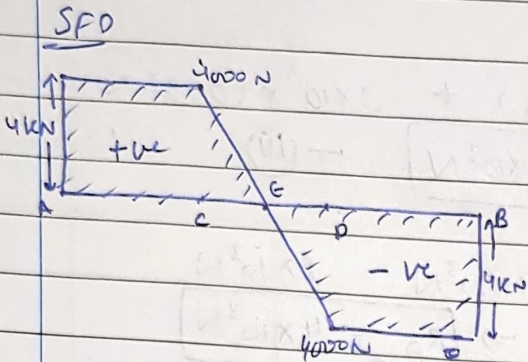 SFD
4000 N
4KN
+ve
A
C
E
D
B
- ve
4KN
4000N